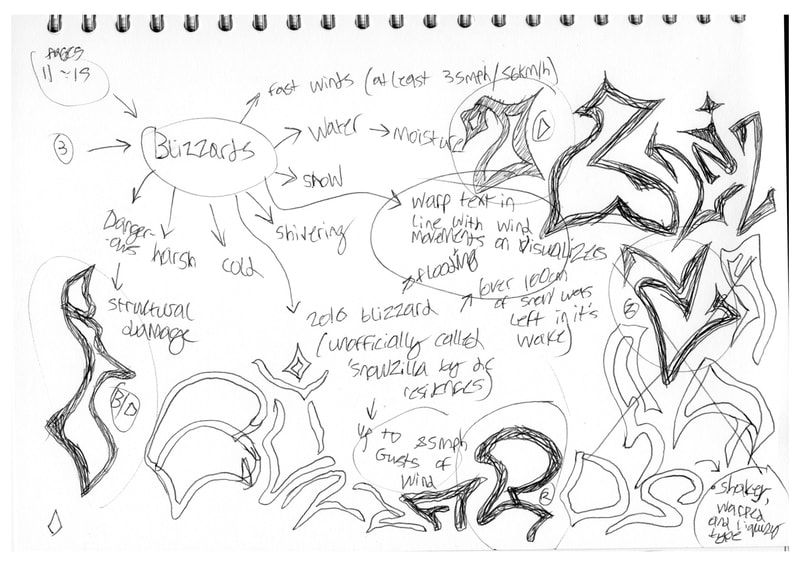 PAGES
11~15
3
Blizzards
Fast winds (at least 35mph/56km/h)
Water → Moisture
snow
shivering
Danger-
ous
harsh
cold
structural
damage
warp text in
line with wind
movements on visualizer
flooding
over 100cm
of snow was
left in it's
wake)
2016 blizzard
(unofficially called
'snowzilla by dc
residences)
up to 85mph
Gusts of
Wind
2
• shakey,
warped
and liquify
type